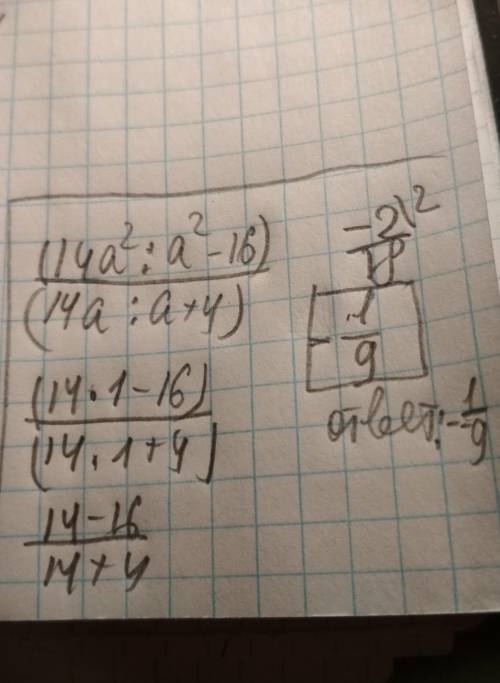 (14a²:a²-16)
(14a:a+4)
(14·1-16)
(14·1+4)
14-16
14+4
-2\²
18
-1
9
ответ:-1/9